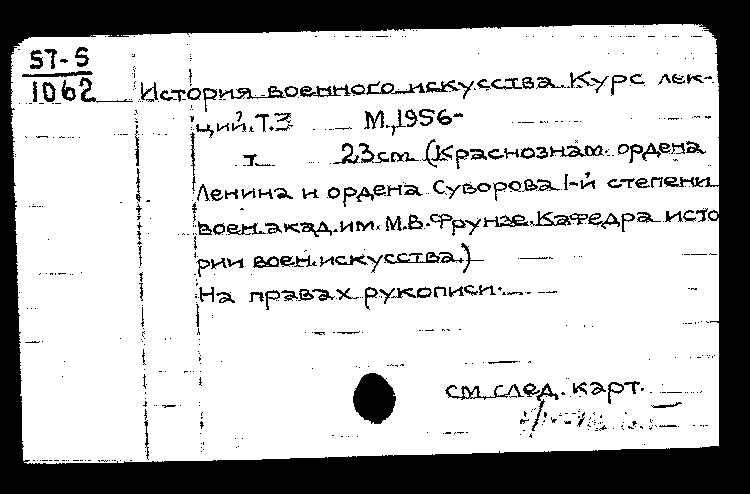 57-5
1062
История военного искусства. Курс лек-
ций. Т.3 М., 1956-
т 23 см. (Краснознам. ордена
Ленина и ордена Суворова I-й степени
воен. акад. им. М.В. Фрунзе. Кафедра исто
рии воен. искусства.)
На правах рукописи.
см. след. карт.